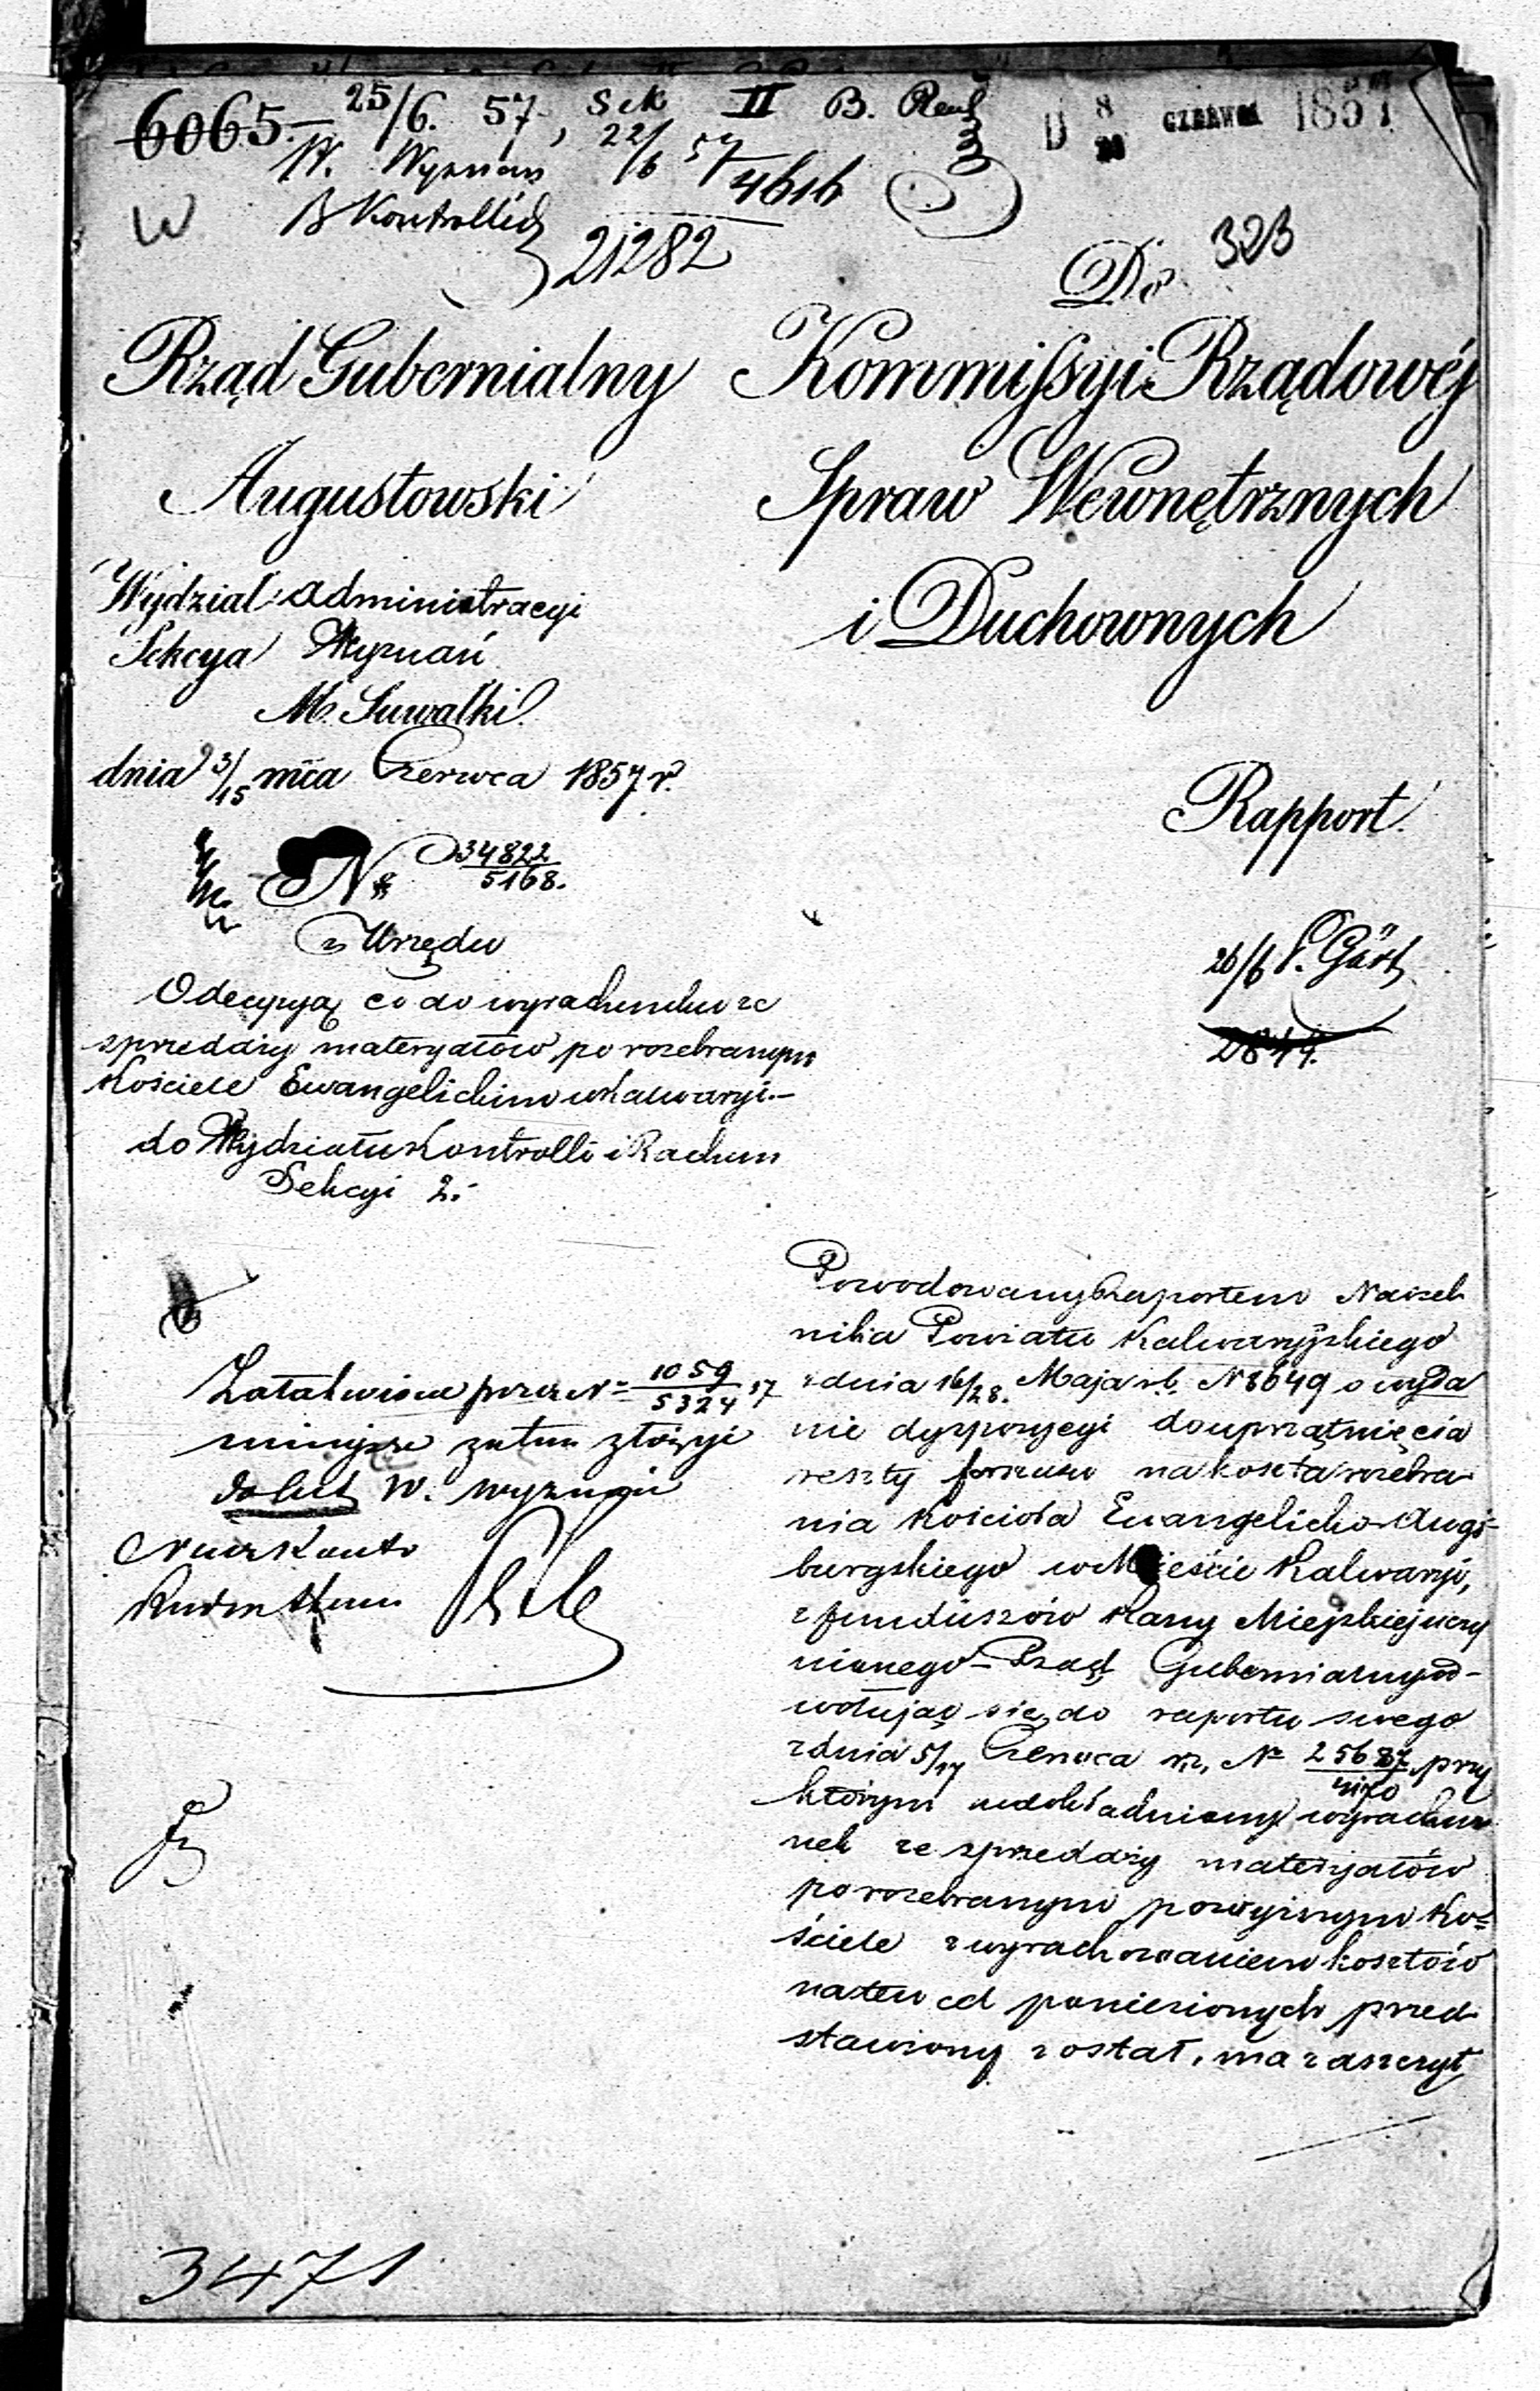 6065. 25/6. 57, Sek II B. Rach
D 8/20 CZERWCA 1857
W. Wyznań 22/6 57
4616
W
B Kontrolli
21282
323
Do
Rząd Gubernialny
Augustowski
Wydział Administracyi
Sekcya Wyznań
M. Suwałki
dnia 3/15 mca Czerwca 1857 r.
N 34822/5168.
z Urzędu
O decyzyą co do wyrachunku ze
sprzedaży materyałów po rozebranym
Kościele Ewangelickim w Kalwaryi.–
do Wydziału Kontrolli i Rachun
Sekcyi 2.
Kommissyi Rządowéj
Spraw Wewnętrznych
i Duchownych
Rapport.
26/6 P. Gärt
2844.
Załatwione przez N= 1059/5324 57
niniejsze zatem złożyć
do akt W. Wyznań
Powodowany Raportem Naczel
nika Powiatu Kalwaryjskiego
z dnia 16/28. Maja rb. N 8649 o wyda
nie dyspozycyi do uprzątnięcia
reszty forszusu na koszta rozebra
nia Kościoła Ewangelicko Augs-
burgskiego w Mieście Kalwaryi,
z funduszów Kassy Miejskiej uczy
nionego – Rząd Gubernialny od-
wołując się do raportu swego
z dnia 5/17 Czerwca rz, N 25687 przy
którym udokładniony wyrachu
nek ze sprzedaży materyałów
po rozebranym powyższym Ko=
ściele z wyrachowaniem kosztów
na ten cel poniesionych przed
stawiony został, ma zaszczyt
3471